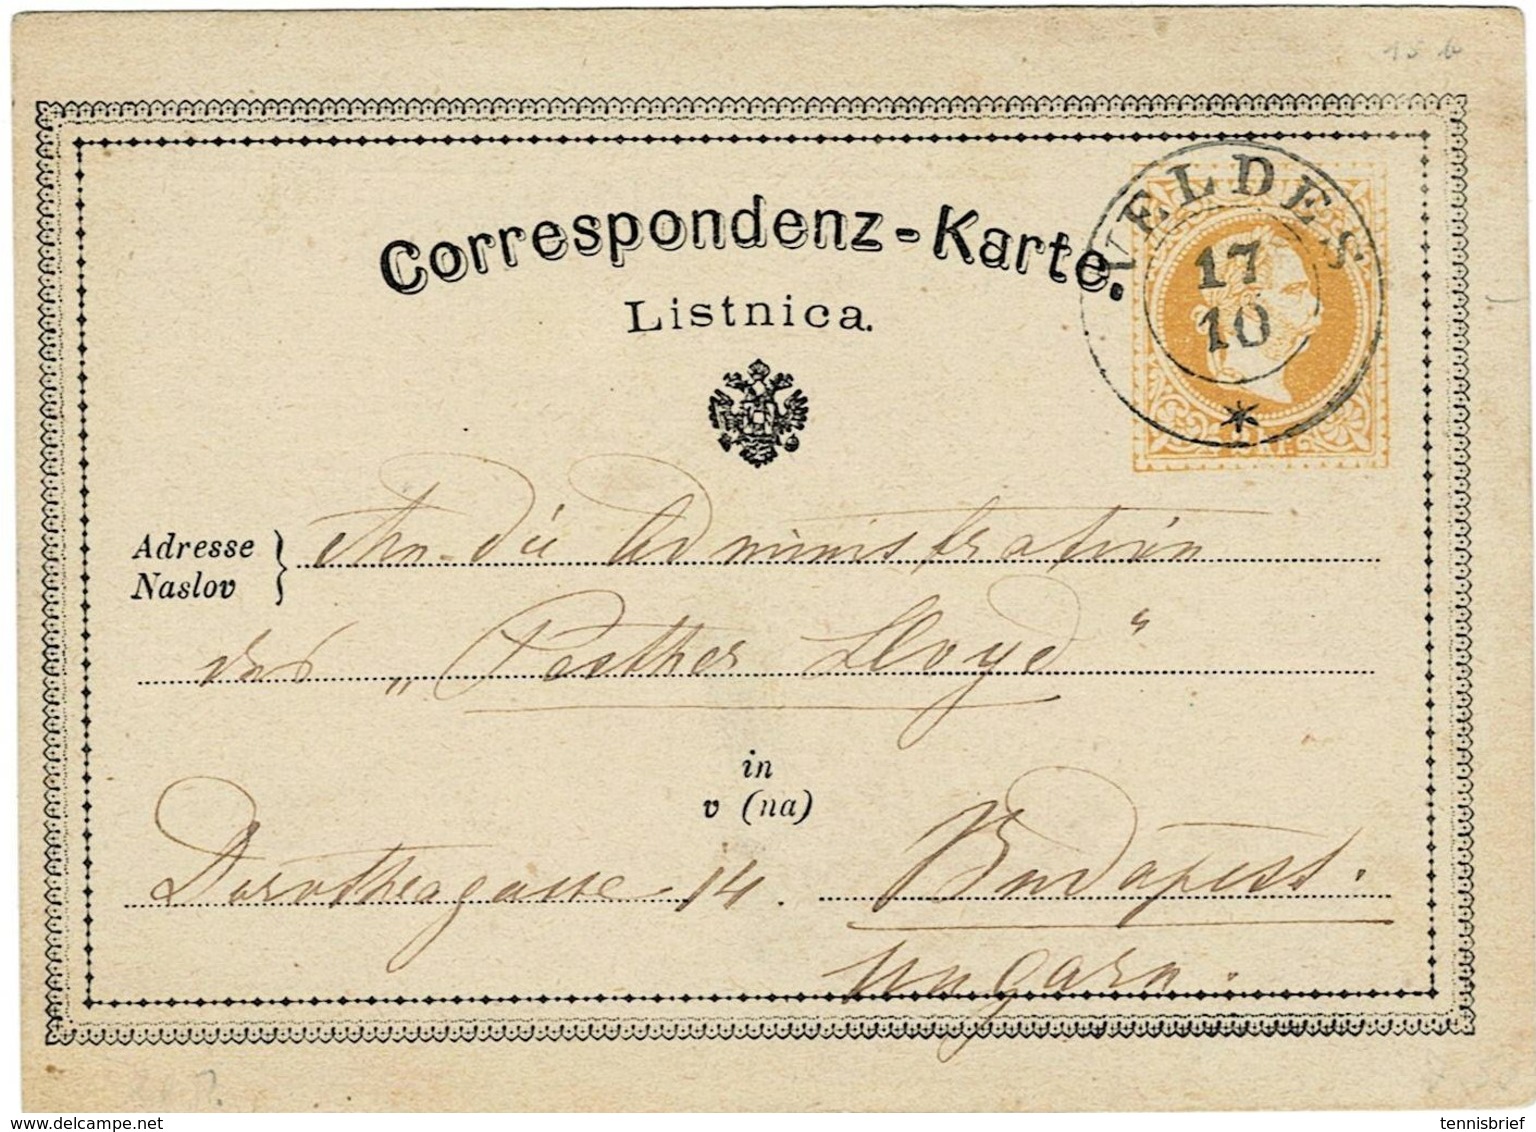 15 b
Correspondenz-Karte.
Listnica.
VELDES
17
10
2 Kr.
Adresse
Naslov
An die Administration
des „Pesther Lloyd“
in
v (na)
Dorotheagasse 14. Budapest.
Ungarn.
delcampe.net
tennisbrief